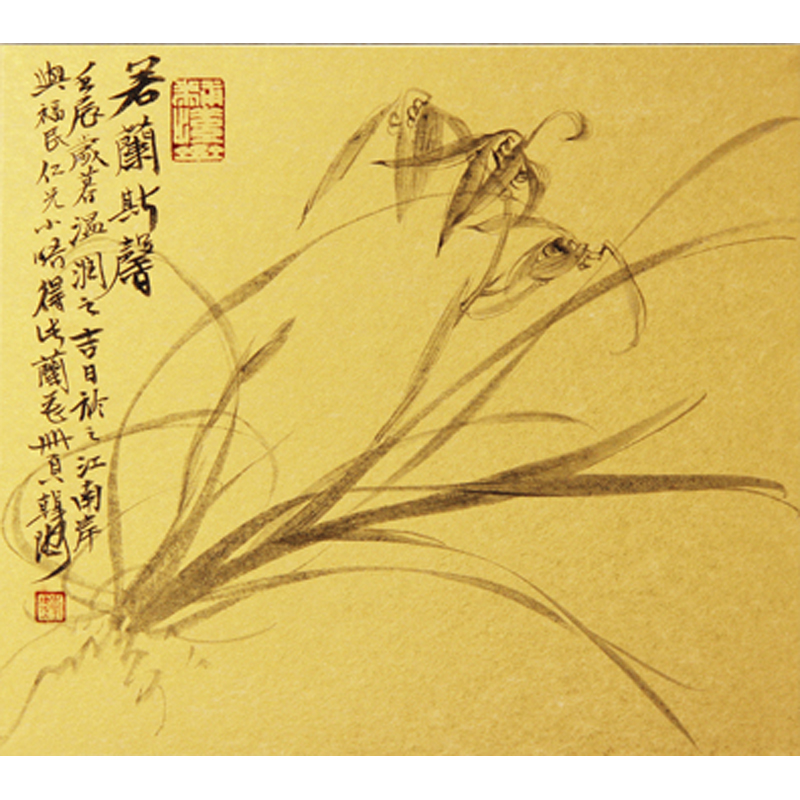 若蘭斯馨
壬辰歲暮溫潤之吉日於之江南岸
與福民仁兄小晤得此蘭花冊頁韓